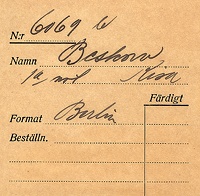 N:r 6069 b
Namn Beskow
Färdigt
Format Berlin
Beställn.